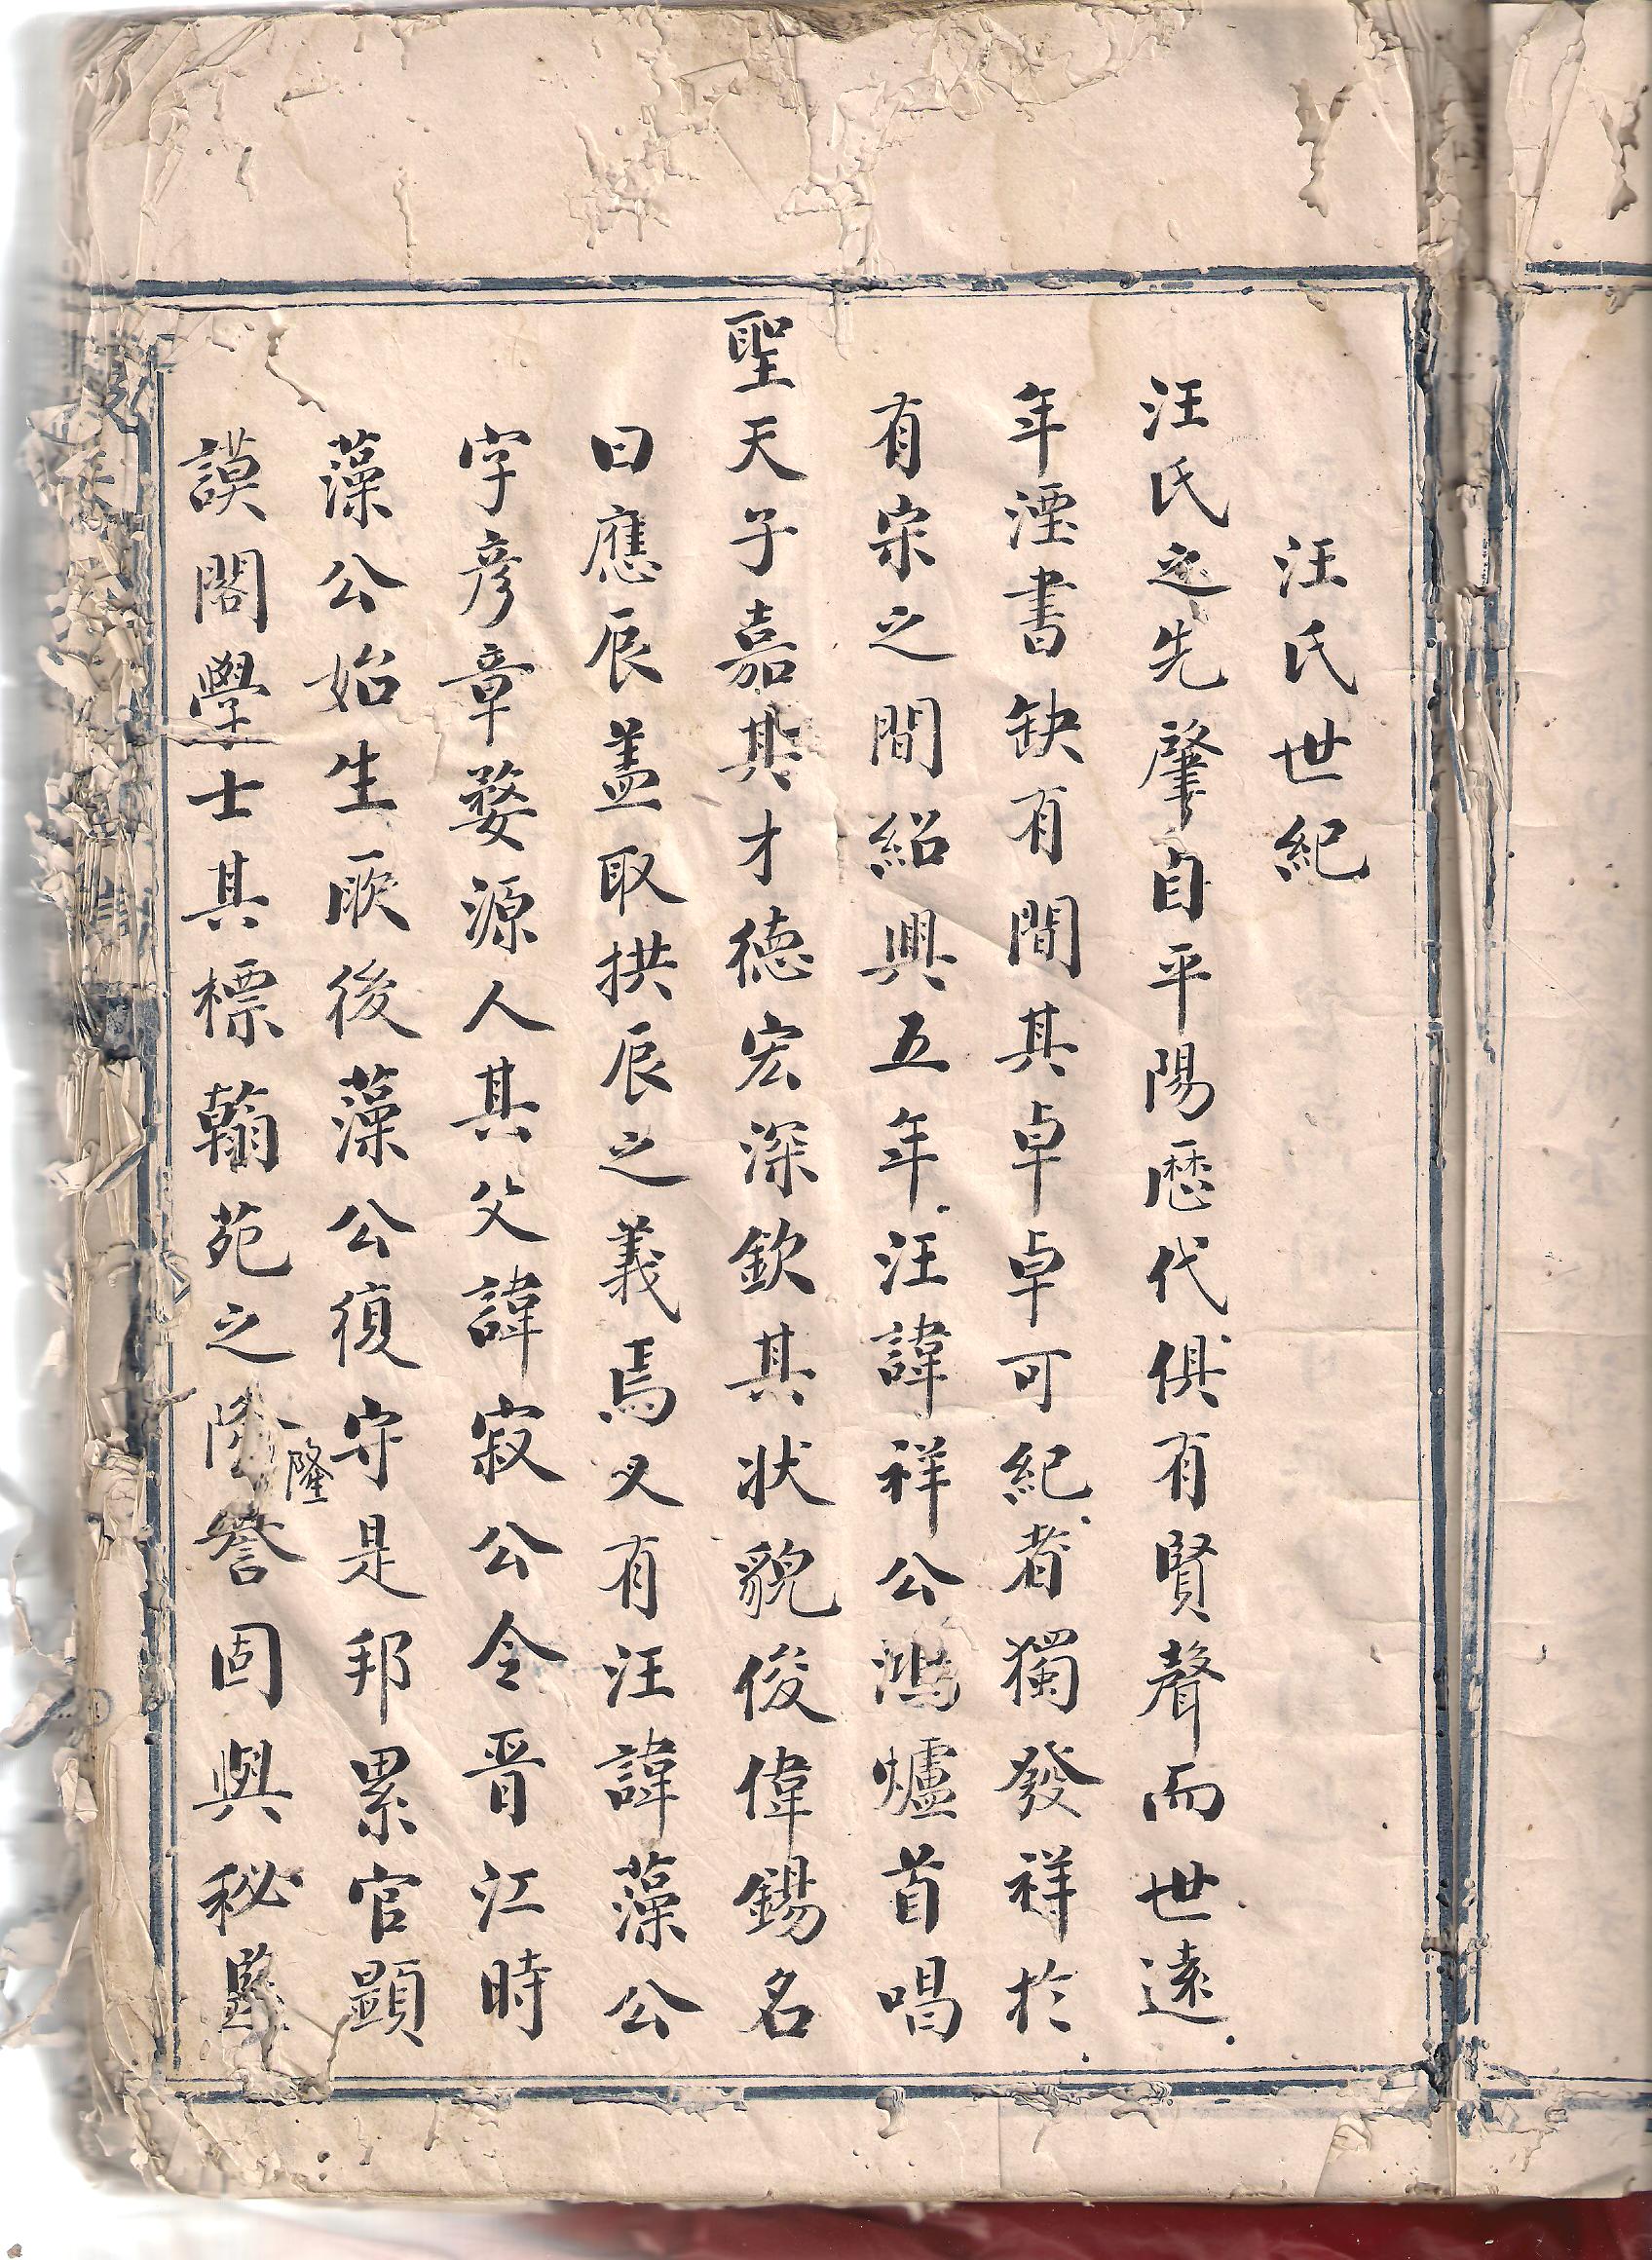 汪氏世紀
汪氏之先肇自平陽歷代俱有賢聲而世遠
年湮書缺有間其卓卓可紀者獨發祥於
有宗之間紹興五年汪諱祥公鴻爐首唱
聖天子嘉其才德宏深欽其狀貌俊偉錫名
曰應辰蓋取拱辰之義焉又有汪諱藻公
字彥章婺源人其父諱寂公令晋江時
藻公始生厥後藻公復守是邦累官顯
謨閣學士其標翰苑之隆譽固與秘
隆